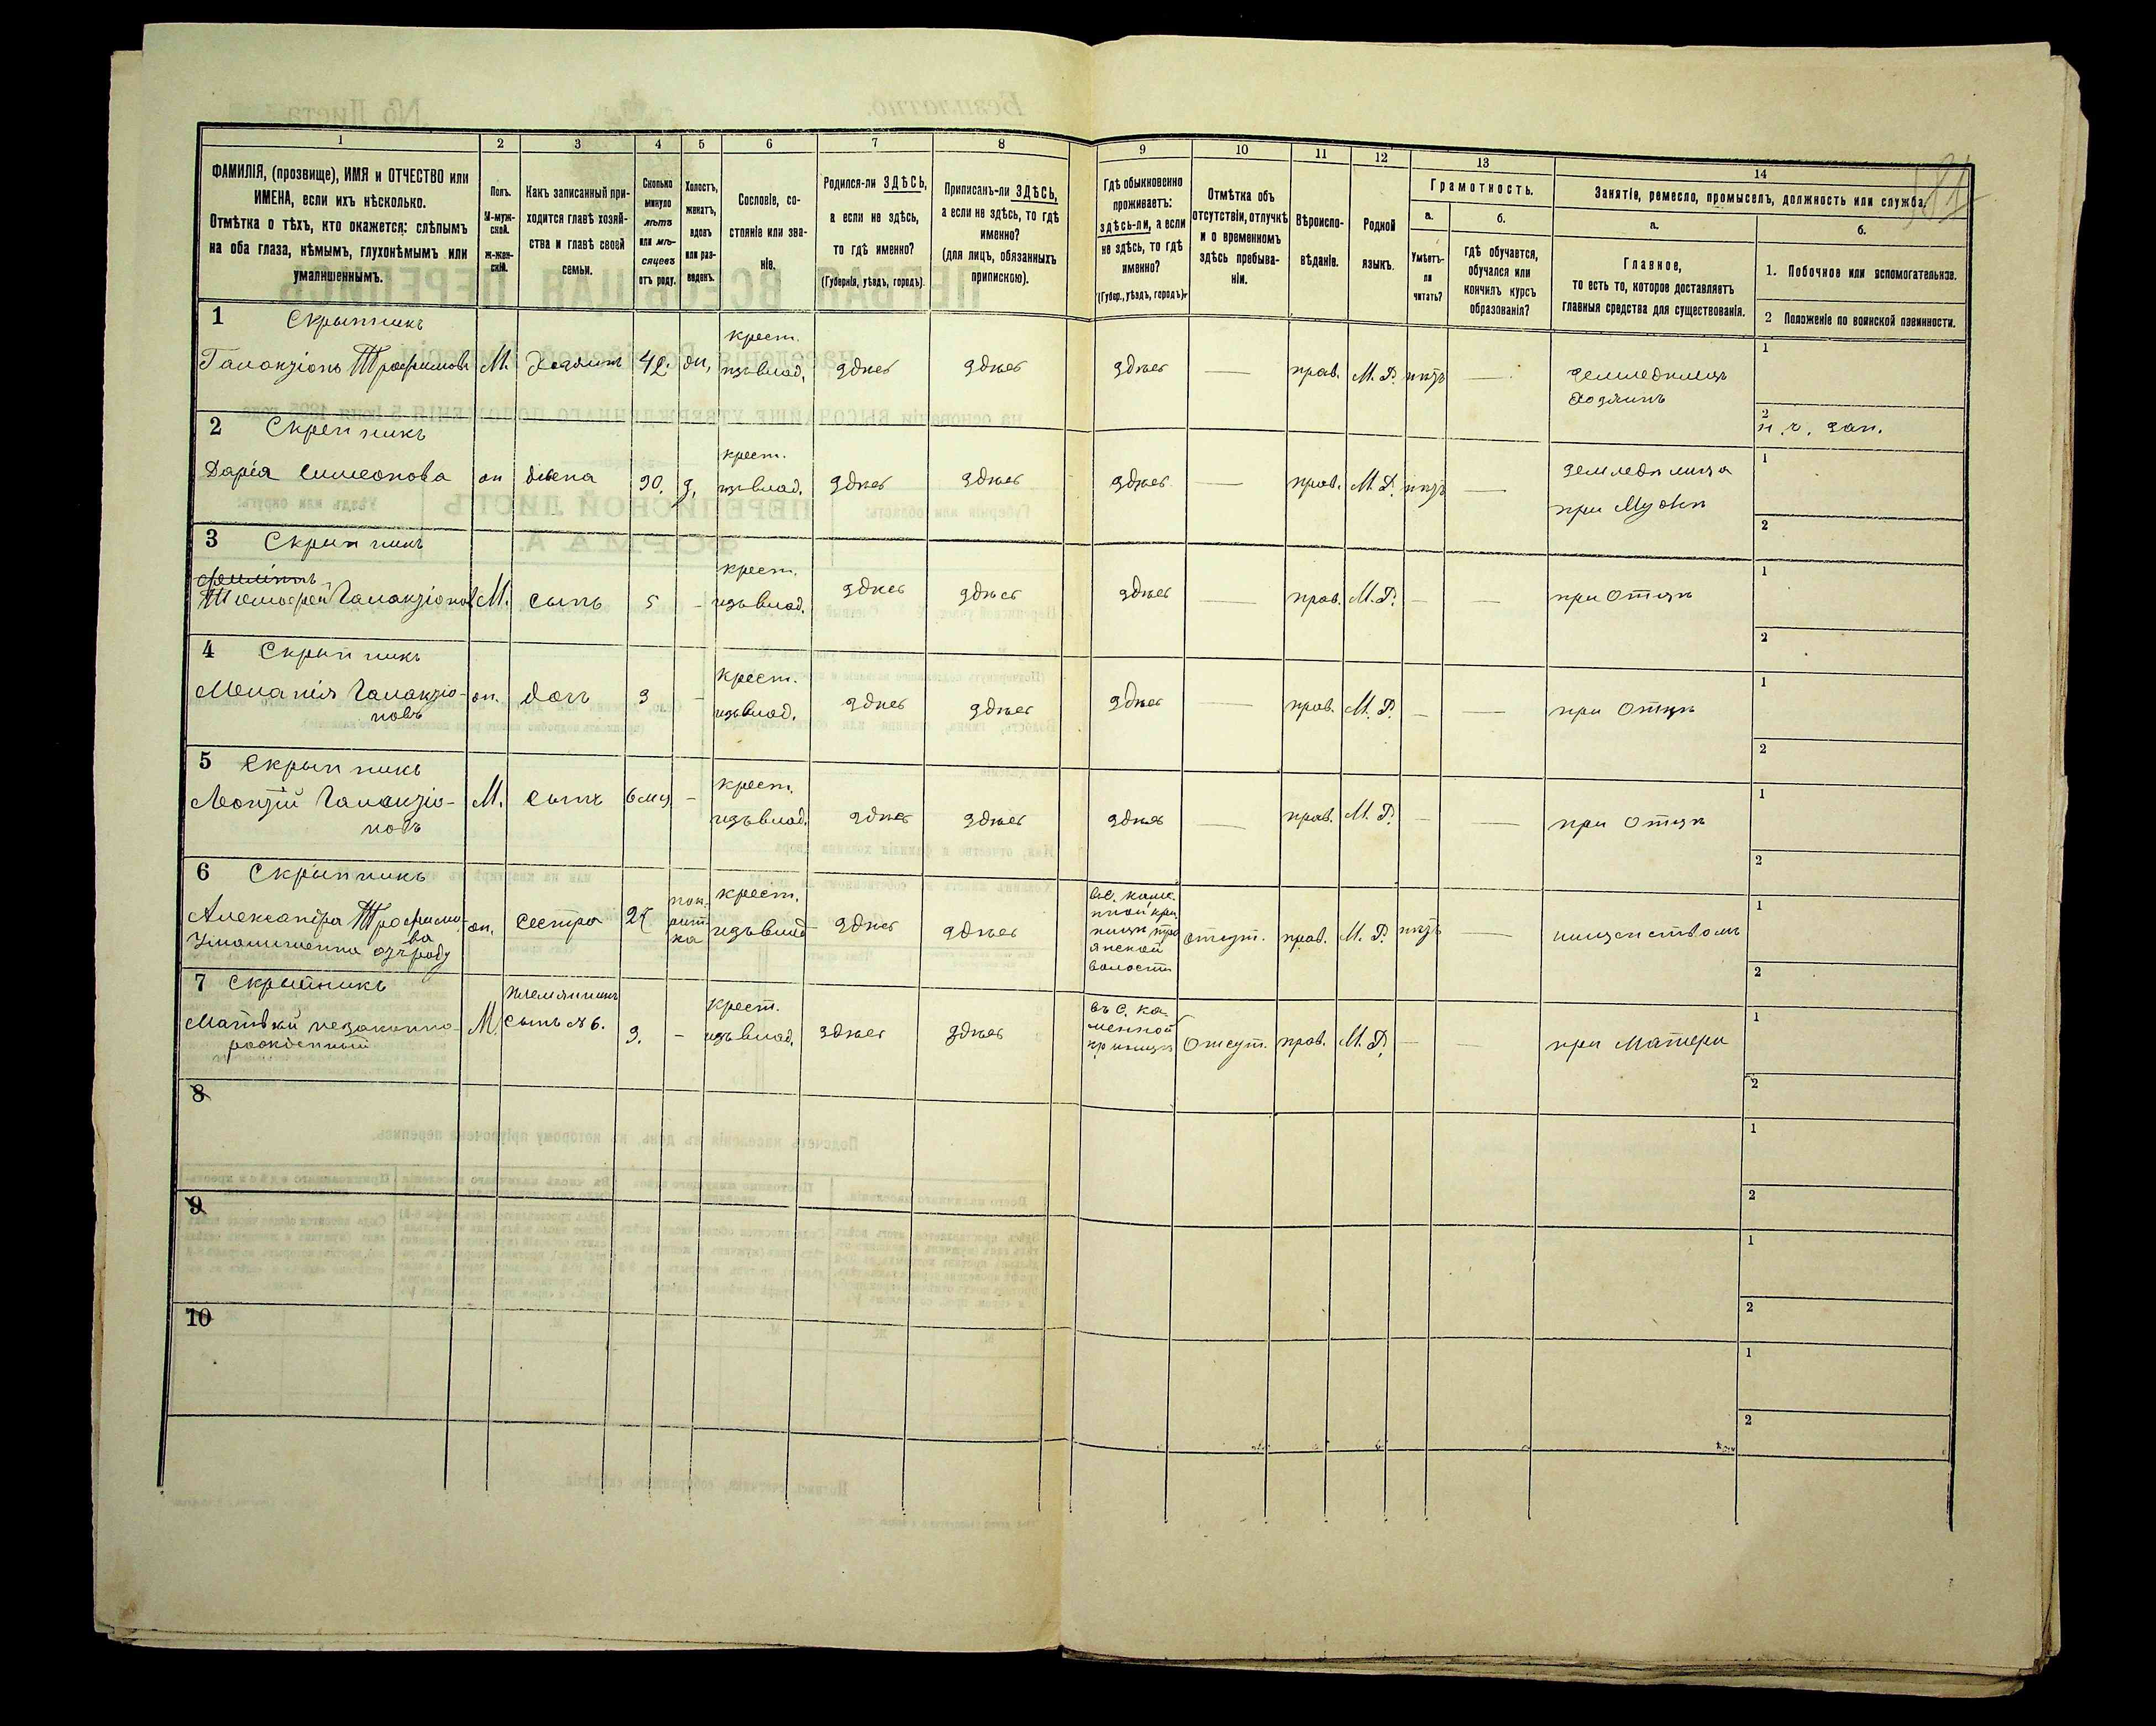 1 2 3 4 5 6 7 8 9 10 11 12 13 14
ФАМИЛІЯ, (прозвище), ИМЯ и ОТЧЕСТВО или
ИМЕНА, если ихъ нѣсколько.
Отмѣтка о тѣхъ, кто окажется: слѣпымъ
на оба глаза, нѣмымъ, глухонѣмымъ или
умалишеннымъ.
Полъ.
М-муж-
ской.
ж-жен-
скій.
Какъ записанный при-
ходится главѣ хозяй-
ства и главѣ своей
семьи.
Сколько
минуло
лѣтъ
или мѣ-
сяцевъ
отъ роду.
Холостъ,
женатъ,
вдовъ
или раз-
веденъ.
Сословіе, со-
стояніе или зва-
ніе.
Родился-ли ЗДѢСЬ,
а если не здѣсь,
то гдѣ именно?
(Губернія, уѣздъ, городъ).
Приписанъ-ли ЗДѢСЬ,
а если не здѣсь, то гдѣ
именно?
(для лицъ, обязанныхъ
припискою).
Гдѣ обыкновенно
проживаетъ:
здѣсь-ли, а если
не здѣсь, то гдѣ
именно?
(Губер., уѣздъ, городъ).
Отмѣтка объ
отсутствіи, отлучкѣ
и о временномъ
здѣсь пребыва-
ніи.
Вѣроиспо-
вѣданіе.
Родной
языкъ.
Грамотность.
а.
Умѣетъ-
ли
читать?
б.
гдѣ обучается,
обучался или
кончилъ курсъ
образованія?
Занятіе, ремесло, промыселъ, должность или служба.
а.
Главное,
то есть то, которое доставляетъ
главныя средства для существованія.
б.
1. Побочное или вспомогательное.
2 Положеніе по воинской повинности.
1 Скрыпникъ
Галакзіонъ Трофимовъ М. Хозяинъ 42. крест. изъ влад. здѣсь здѣсь здѣсь — прав. М. Р. нѣтъ — земледѣлецъ
хозяинъ
1
2
2 Скрепникъ
Дарія Симеонова жена 30. крест. изъ влад. здѣсь здѣсь здѣсь — прав. М. Р. нѣтъ —
при Мужѣ
1
2
3 Скрыпникъ
Галакзіоновъ М. сынъ 5 - крест. изъ влад. здѣсь здѣсь здѣсь — прав. М. Р. — — при Отцѣ
1
2
4 Скрыпникъ
Меланія Галакзіо-
новъ дочь 3 - крест. изъ влад. здѣсь здѣсь здѣсь — прав. М. Р. — — при Отцѣ
1
2
5 Скрыпникъ
Леонтій Галакзіо-
новъ М. сынъ 6 мѣ - крест. изъ влад. здѣсь здѣсь здѣсь — прав. М. Р. — — при Отцѣ
1
2
6 Скрыпникъ
Александра Трофимо-
ва
Умалишенна отъ роду сестра крест. изъ влад здѣсь здѣсь
волости отсут. прав. М. Р. нѣтъ — нищенствомъ
1
2
7 Скрыпникъ
Матвѣй незаконно-
рожденный М. племянникъ
сынъ № 6. 3. - крест. изъ влад. здѣсь здѣсь въ с. Ка-
менной
криницѣ Отсут. прав. М. Р. — — при Матери
1
2
8
1
2
9
1
2
10
1
2